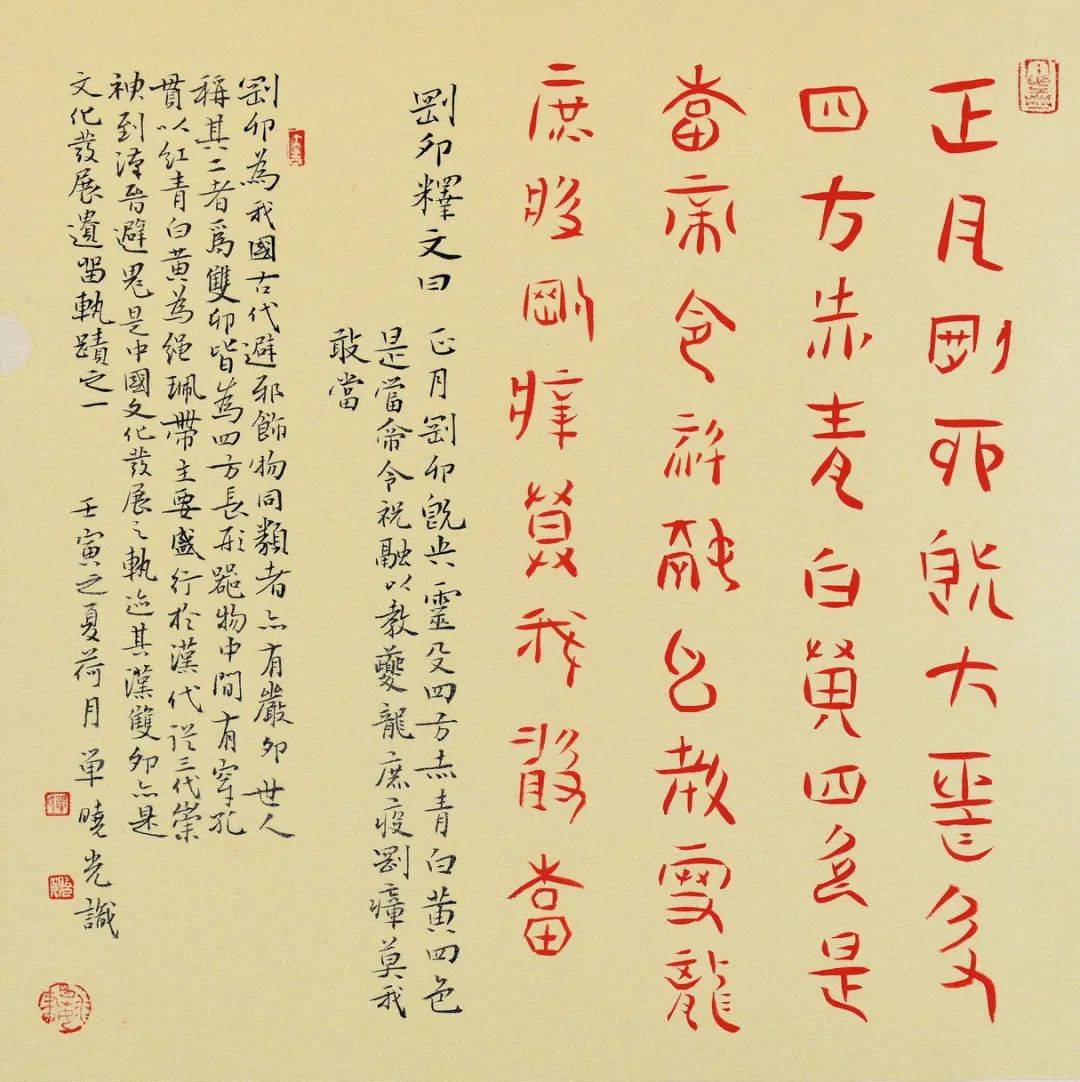 正月剛卯既大靈殳
四方赤青白黄四色是
當帝令祝融以教夔龍
庶疫剛癉莫我敢當
剛卯釋文曰 正月剛卯既央靈殳四方赤青白黄四色
是當帝令祝融以教夔龍庶疫剛癉莫我
敢當
剛卯為我國古代避邪飾物同類者亦有嚴卯世人
稱其二者爲雙卯皆為四方長形器物中間有穿孔
貫以紅青白黄為绳珮帶主要盛行於漢代從三代崇
神到漢晉避鬼是中國文化發展之軌迹其漢雙卯亦是
文化發展遺留軌蹟之一 壬寅之夏荷月單曉光識